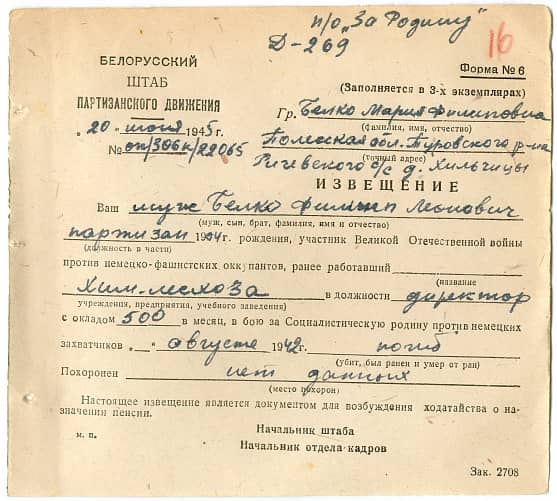 п/о „За Родину"
Д-269
16
БЕЛОРУССКИЙ
ШТАБ
ПАРТИЗАНСКОГО ДВИЖЕНИЯ
Форма № 6
(Заполняется в 3-х экземплярах)
„20" июня 1945г.
№ оп/306к/22065
Гр. Белко Мария Филиповна
(фамилия, имя, отчество)
Полесская обл. Туровского р-на
(точный адрес)
Ричевского с/с д. Хильчицы
ИЗВЕЩЕНИЕ
Ваш муж Белко Филипп Леонович
(муж, сын, брат, фамилия, имя и отчество)
партизан 1904г. рождения, участник Великой Отечественной войны
(должность в части)
против немецко-фашистских оккупантов, ранее работавший
(название
Хим. лесхоза в должности директор
учреждения, предприятия, учебного заведения)
с окладом 500 в месяц, в бою за Социалистическую родину против немецких
захватчиков „ " августе 1942г. погиб
(убит, был ранен и умер от ран)
Похоронен нет данных
(место похорон)
Настоящее извещение является документом для возбуждения ходатайства о на-
значении пенсии.
Начальник штаба
м. п.
Начальник отдела кадров
Зак. 2708